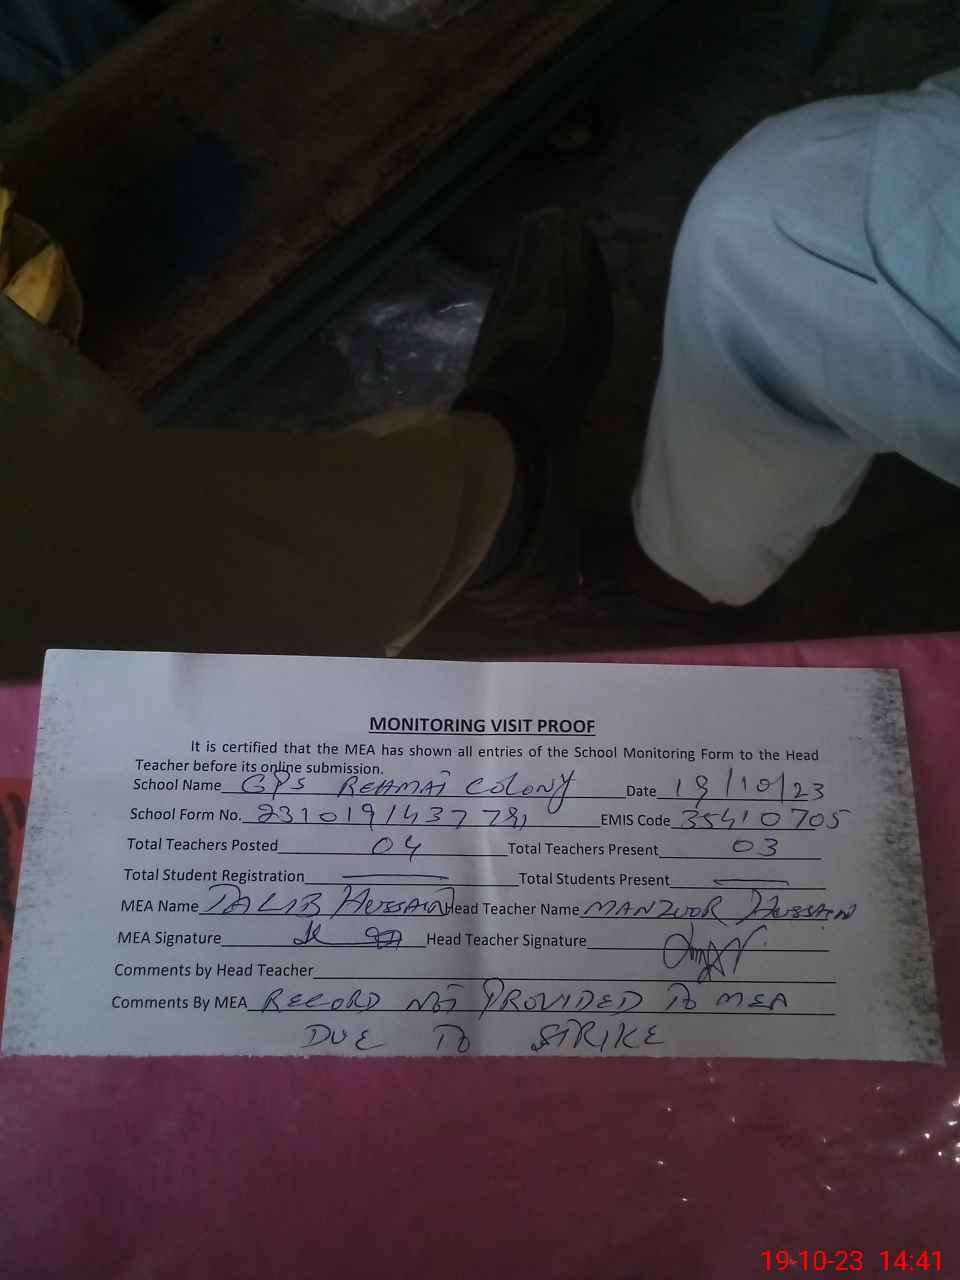 MONITORING VISIT PROOF
It is certified that the MEA has shown all entries of the School Monitoring Form to the Head
Teacher before its online submission.
School Name GPS REHMAT COLONY Date 19/10/23
School Form No. EMIS Code 35410705
Total Teachers Posted 04 Total Teachers Present 03
Total Student Registration — Total Students Present —
MEA Name TALIB HUSSAIN Head Teacher Name MANZOOR HUSSAIN
MEA Signature Head Teacher Signature
Comments by Head Teacher
Comments By MEA RECORD NOT PROVIDED TO MEA
DUE TO STRIKE
19-10-23 14:41